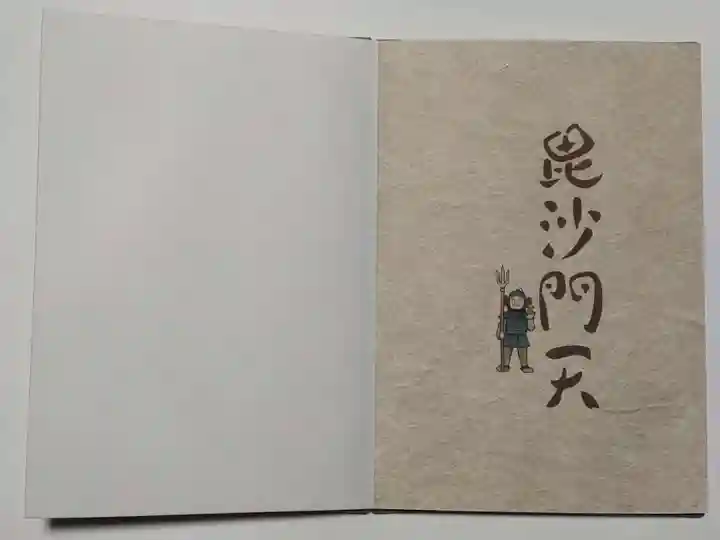 毘沙門天